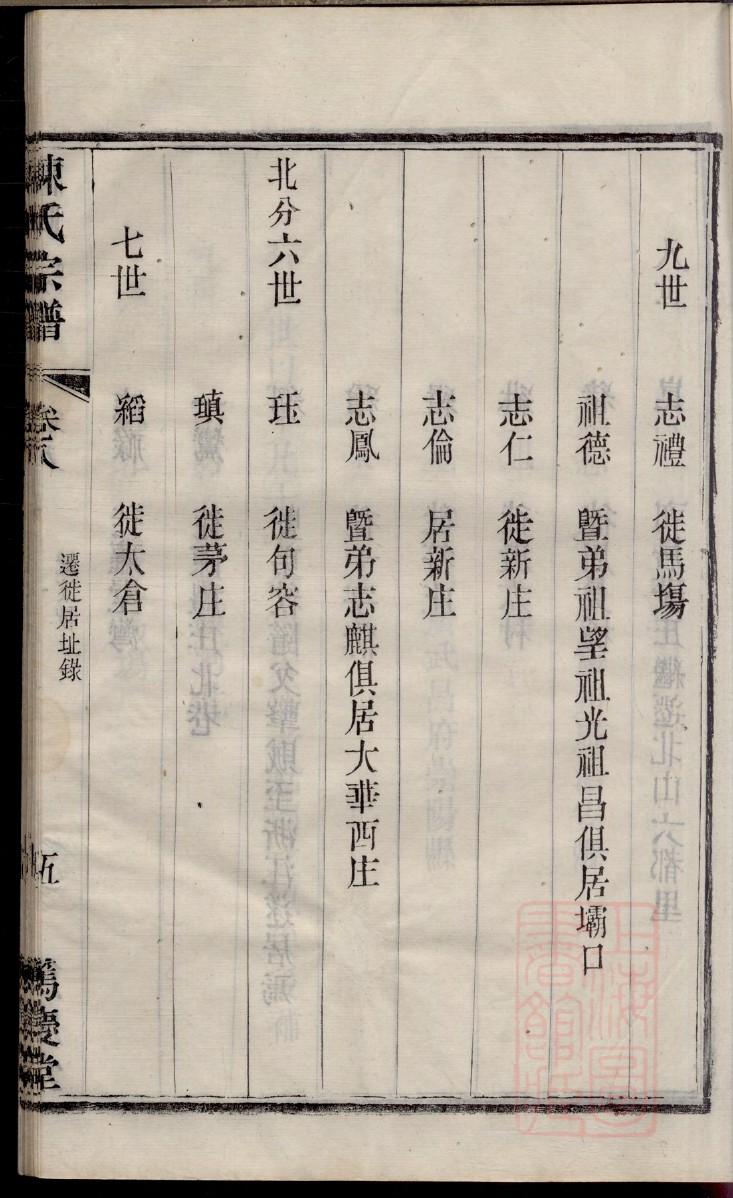 九世　志禮　徙馬塲
祖德　暨弟祖望祖光祖昌俱居壩口
志仁　徙新庄
志倫　居新庄
志鳳　暨弟志麒俱居大華西庄
北分六世　珏　徙句容
瑱　徙茅庄
七世　縚　徙太倉
陳氏宗譜　卷八　遷徙居址錄　五　篤慶堂
上海圖書館藏